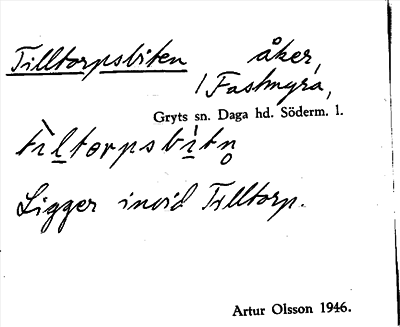 Tilltorpsbiten åker,
i Fastmyra,
Gryts sn. Daga hd. Söderm. l.
tìl̲torpsbi̲tn̥
Ligger invid Tilltorp.
Artur Olsson 1946.